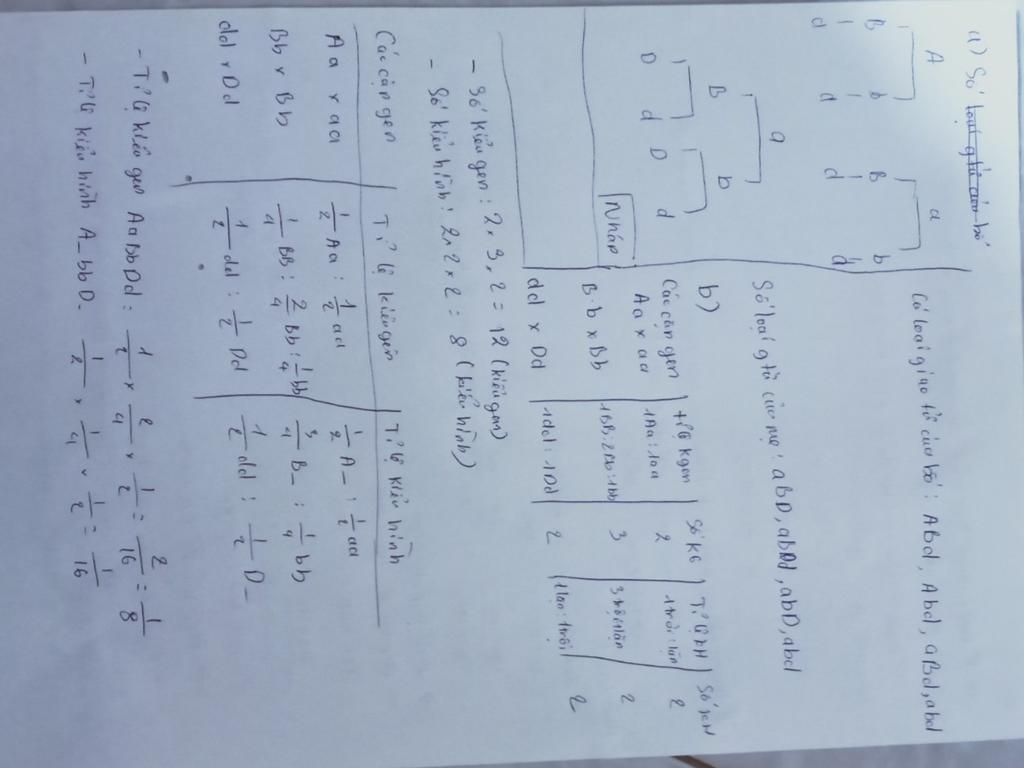 a) Số loại giao tử của bố
A a
B b B b
d d d d
Các loại giao tử của bố: ABd, Abd, aBd, abd
a
B b
D d D d
Nháp
Số loại gtử của mẹ: aBD, aBd, abD, abd
b)
Các cặp gen tỉ lệ kgen Số KG Tỉ lệ KH Số KH
Aa x aa 1Aa : 1aa 2 1 trội : 1 lặn 2
Bb x Bb 1BB:2Bb:1bb 3 3 trội : 1 lặn 2
dd x Dd 1dd : 1Dd 2 1 lặn : 1 trội 2
- Số kiểu gen: 2 x 3 x 2 = 12 (kiểu gen)
- Số kiểu hình: 2 x 2 x 2 = 8 (kiểu hình)
Các cặp gen Tỉ lệ kiểu gen Tỉ lệ kiểu hình
Aa x aa 1/2 Aa : 1/2 aa 1/2 A_ : 1/2 aa
Bb x Bb 1/4 BB : 2/4 Bb : 1/4 bb 3/4 B_ : 1/4 bb
dd x Dd 1/2 dd : 1/2 Dd 1/2 dd : 1/2 D_
- Tỉ lệ kiểu gen AaBbDd = 1/2 x 2/4 x 1/2 = 2/16 = 1/8
- Tỉ lệ kiểu hình A_bbD_ = 1/2 x 1/4 x 1/2 = 1/16